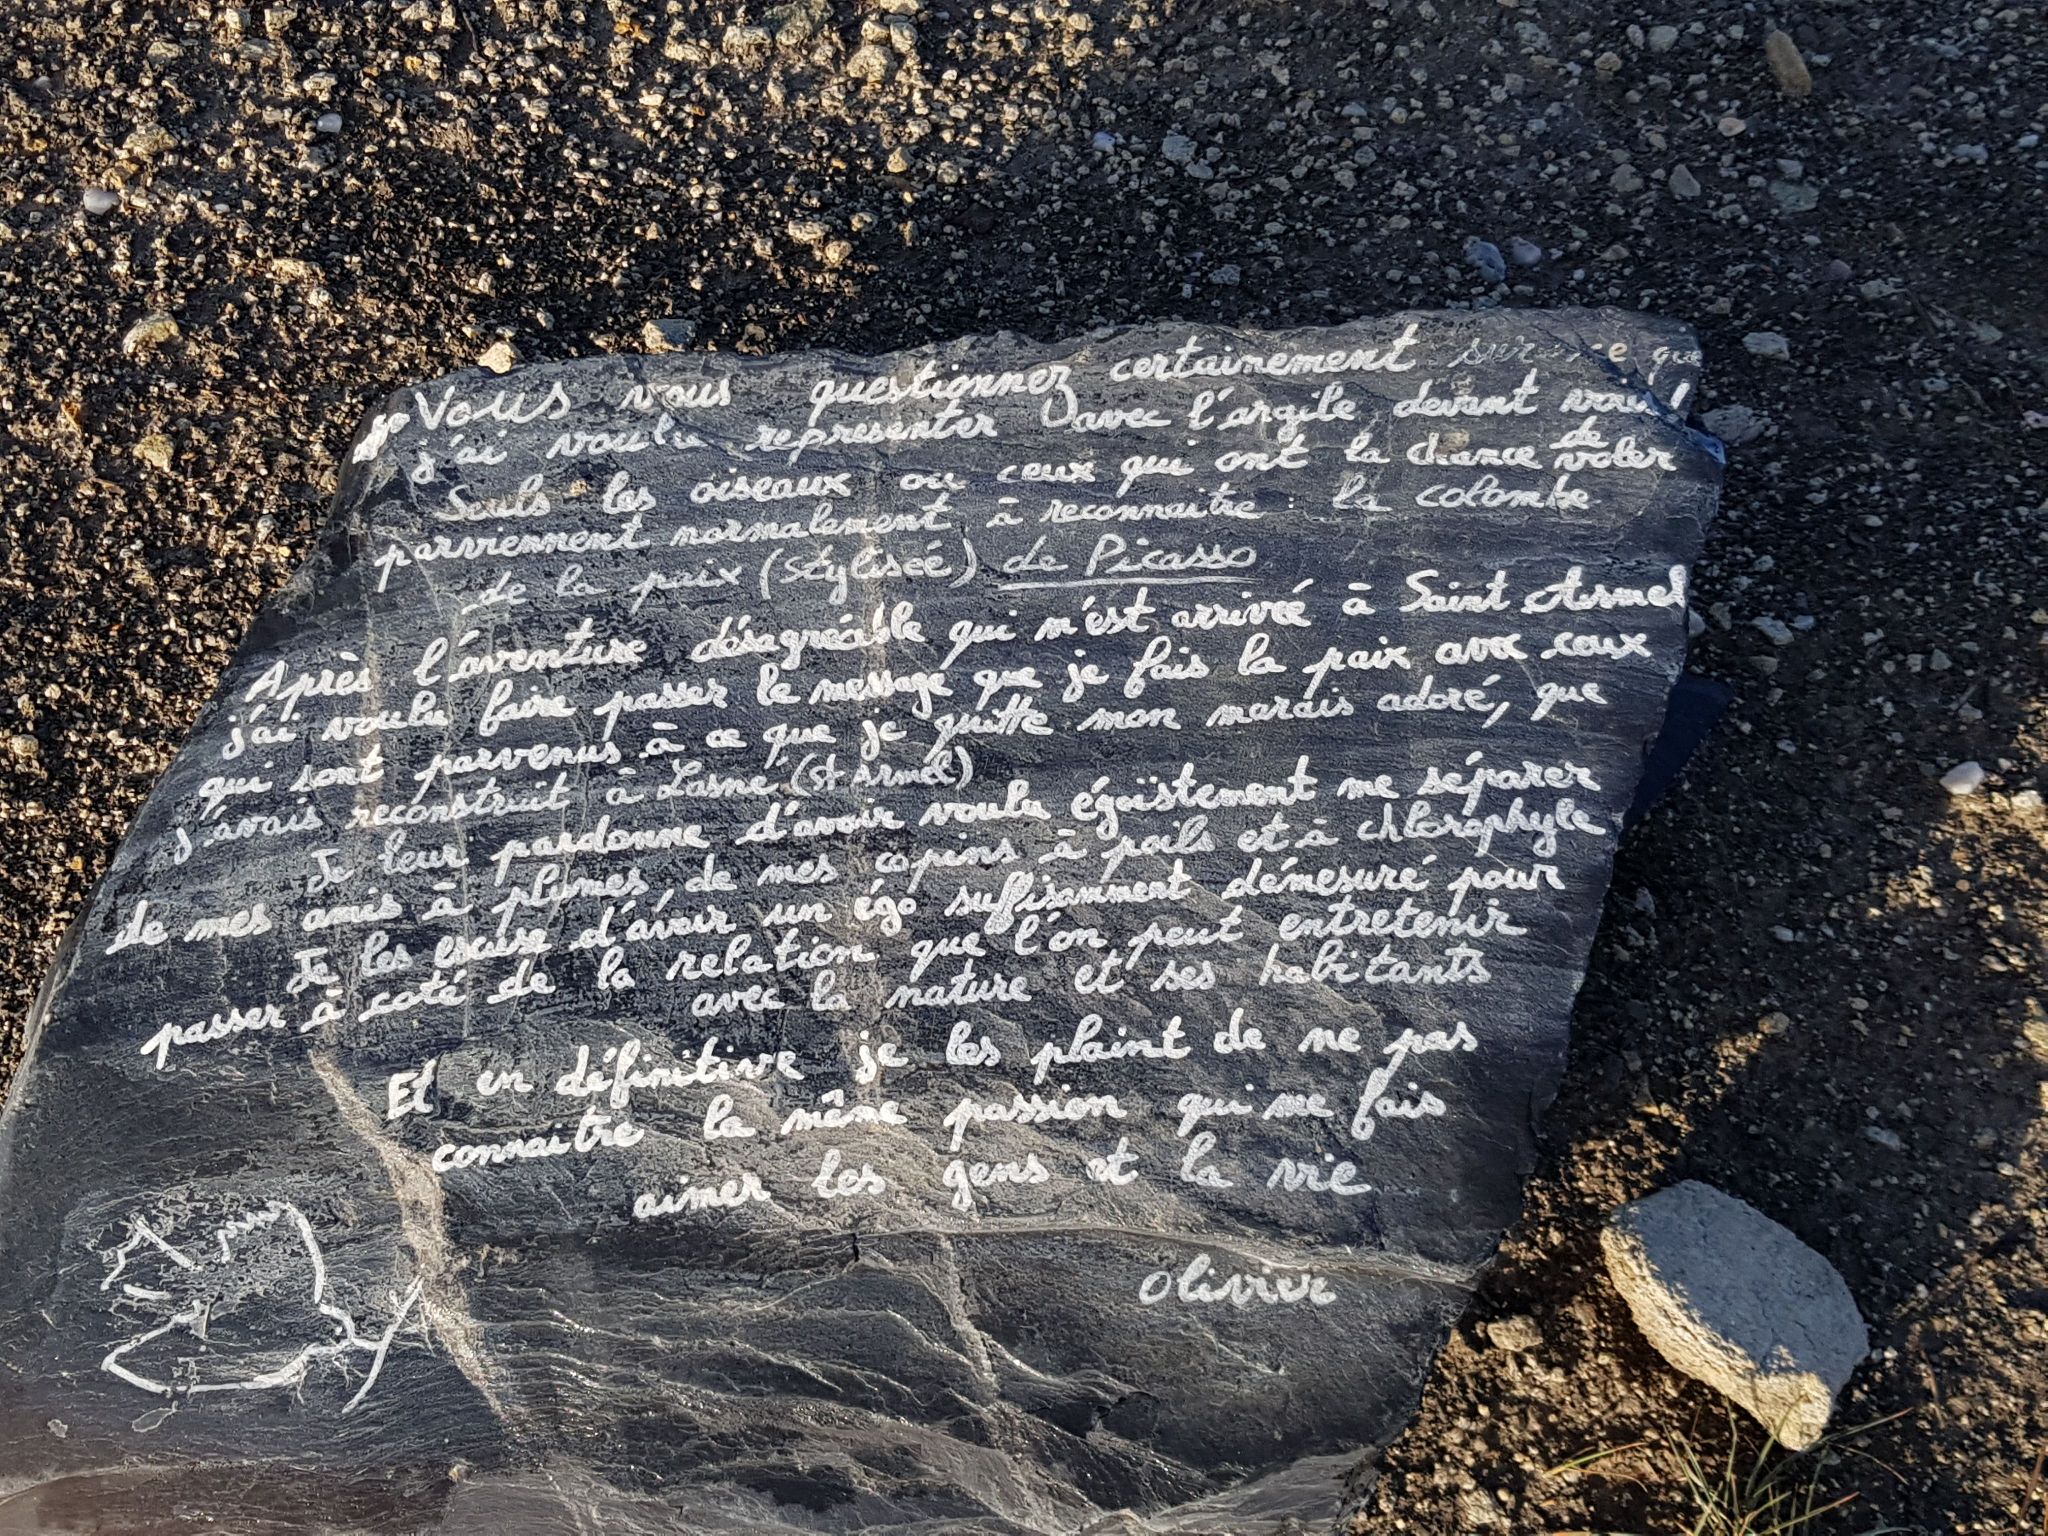 Vous vous questionnez certainement sur ce que
j'ai voulu representer avec l'argile devant vous!
Seuls les oiseaux ou ceux qui ont la chance de voler
parviennent normalement à reconnaitre : la colombe
de la paix (stylisée) de Picasso
Après l'aventure désagréable qui m'est arrivée à Saint Armel
j'ai voulu faire passer le message que je fais la paix avec ceux
qui sont parvenus à ce que je quitte mon marais adoré, que
j'avais reconstruit à Lasné (St Armel)
Je leur pardonne d'avoir voulu égoïstement me séparer
de mes amis à plumes, de mes copins à poils et à chlorophyle
Je les excuse d'avoir un égo suffisamment démesuré pour
passer à coté de la relation que l'on peut entretenir
avec la nature et ses habitants
Et en définitive je les plaint de ne pas
connaitre la même passion qui me fais
aimer les gens et la vie
Olivier